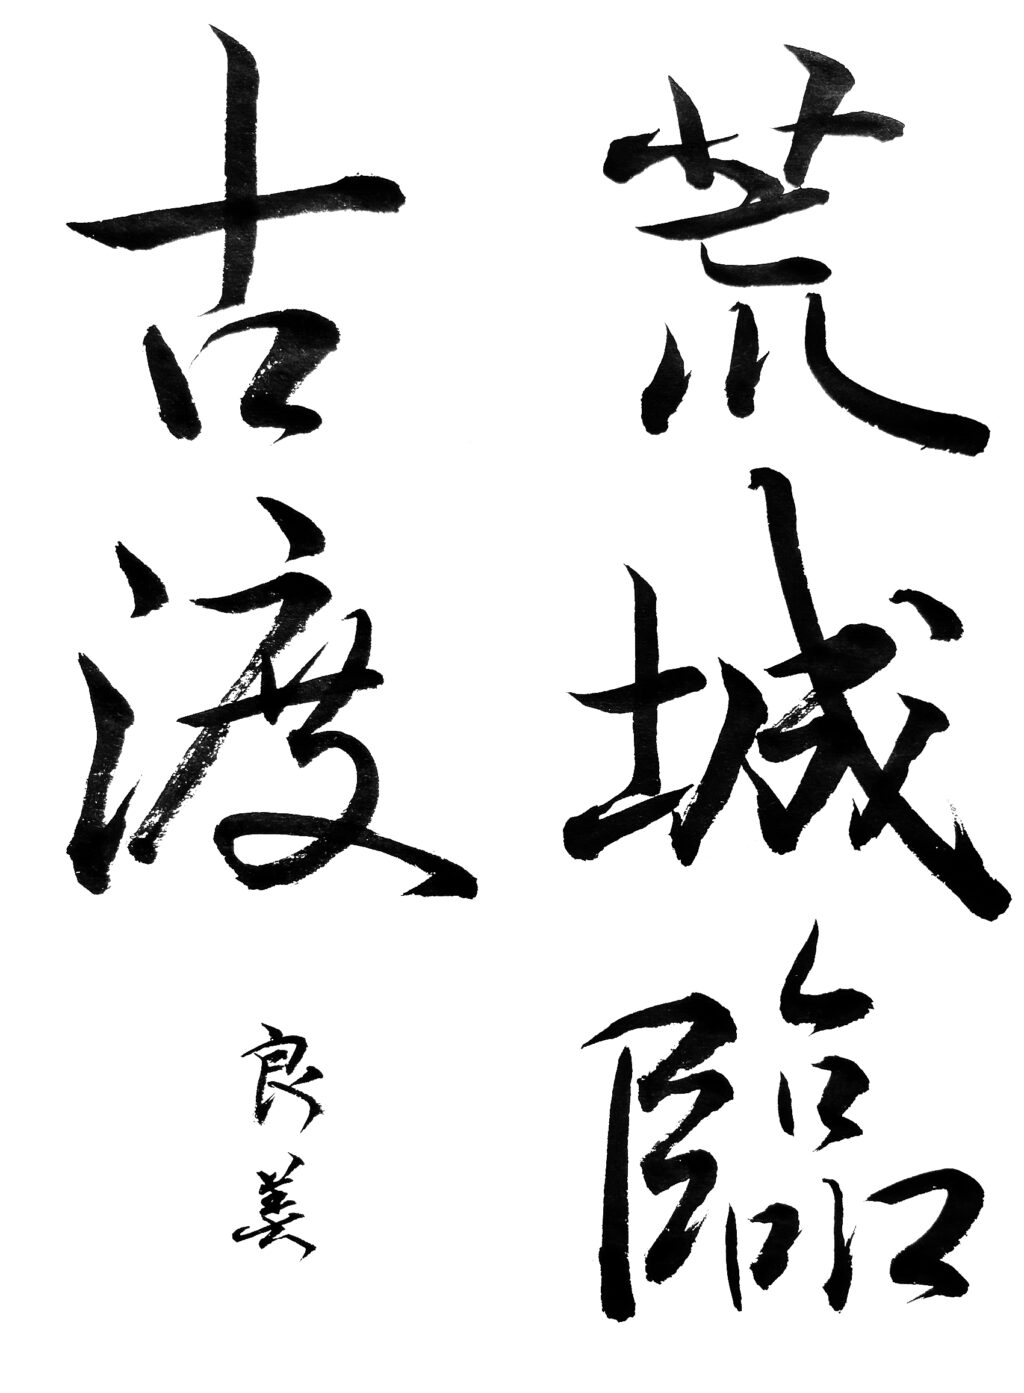 荒城臨
古渡
良美